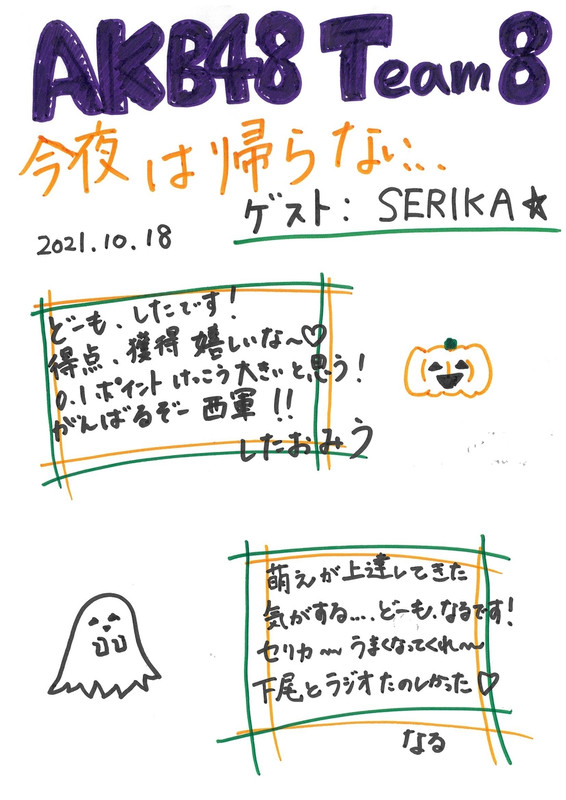 AKB48 Team8
今夜は帰らない...
ゲスト: SERIKA☆
2021.10.18
どーも、したです!
得点、獲得 嬉しいな〜♡
0.1ポイント けっこう大きいと思う!
がんばるぞー 西軍 !!
したおみう
萌えが上達してきた
気がする....どーも、なるです!
セリカ〜 うまくなってくれ〜
下尾とラジオたのしかった♡
なる